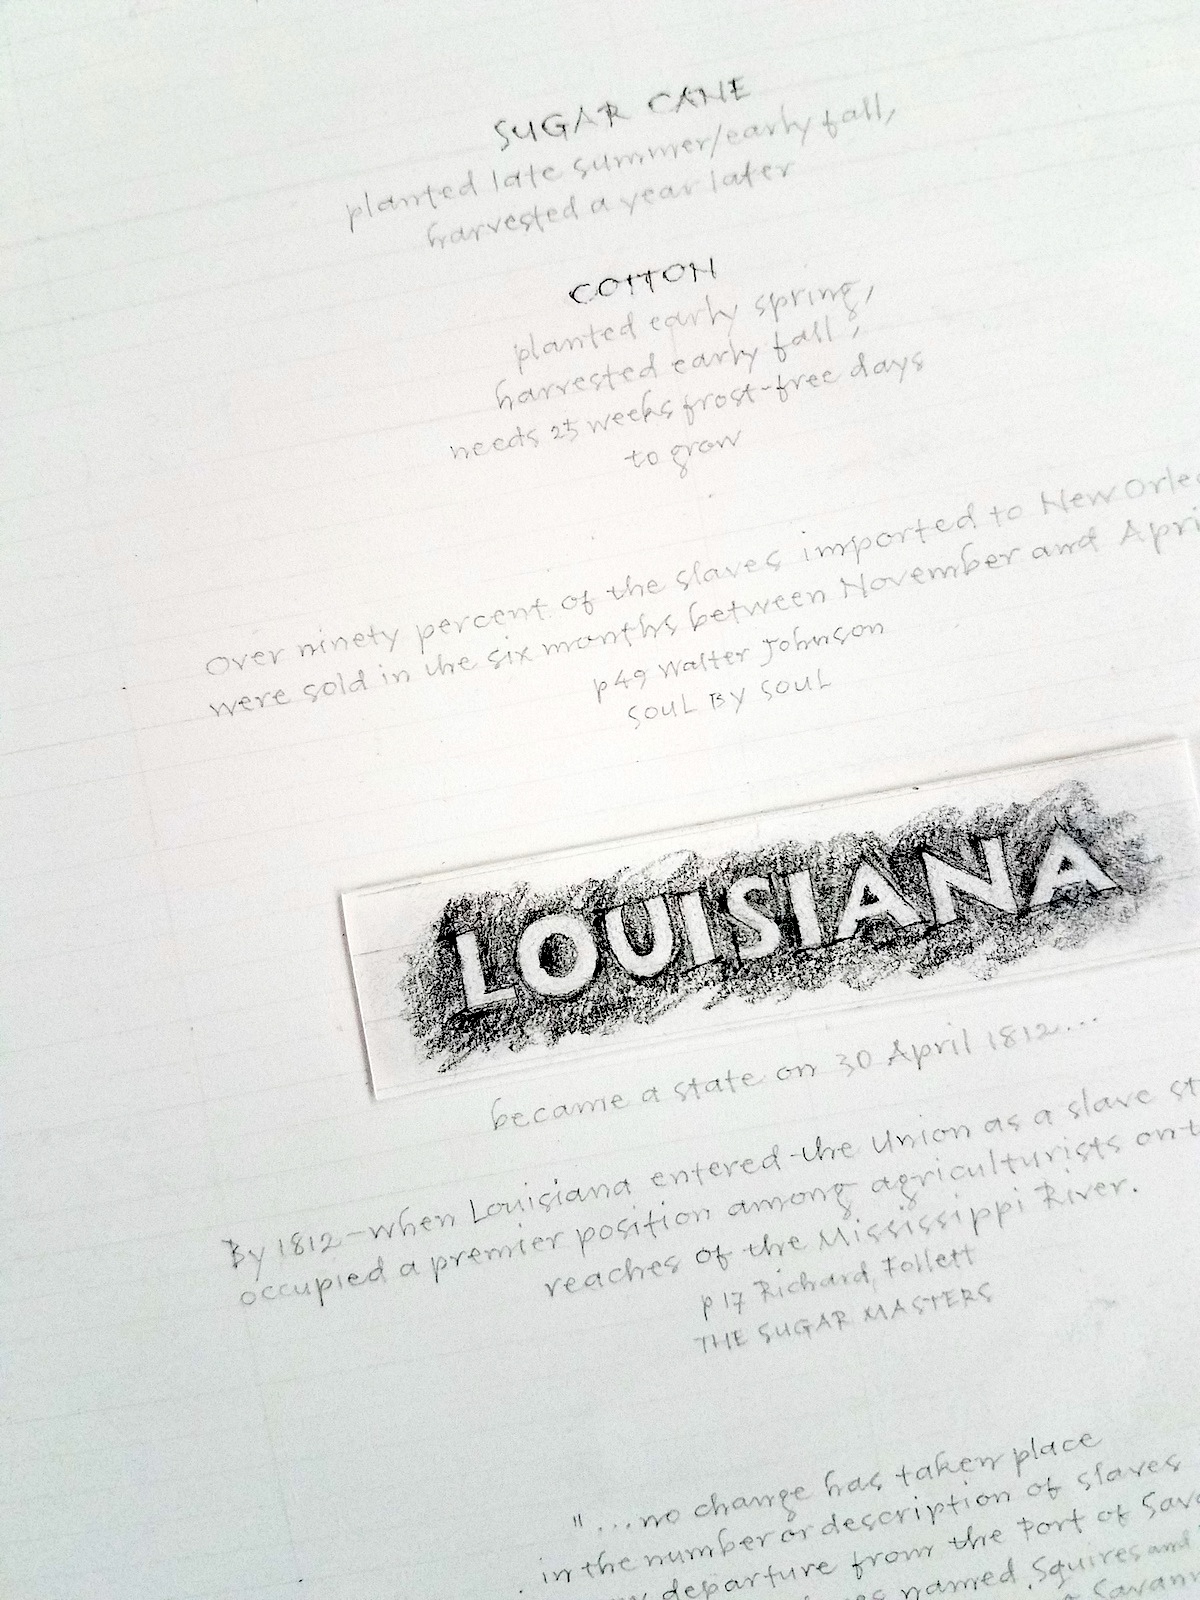 SUGAR CANE
planted late summer/early fall,
harvested a year later
COTTON
planted early spring,
harvested early fall,
needs 25 weeks frost-free days
to grow
Over ninety percent of the slaves imported to New
were sold in the six months between November and
p49 Walter Johnson
SOUL BY SOUL
LOUISIANA
became a state on 30 April 1812...
By 1812–when Louisiana entered the Union as a slave
occupied a premier position among agriculturists
reaches of the Mississippi River.
p17 Richard Follett
THE SUGAR MASTERS
"...no change has taken place
in the number or description of slaves
departure from the Port of
named Squires and